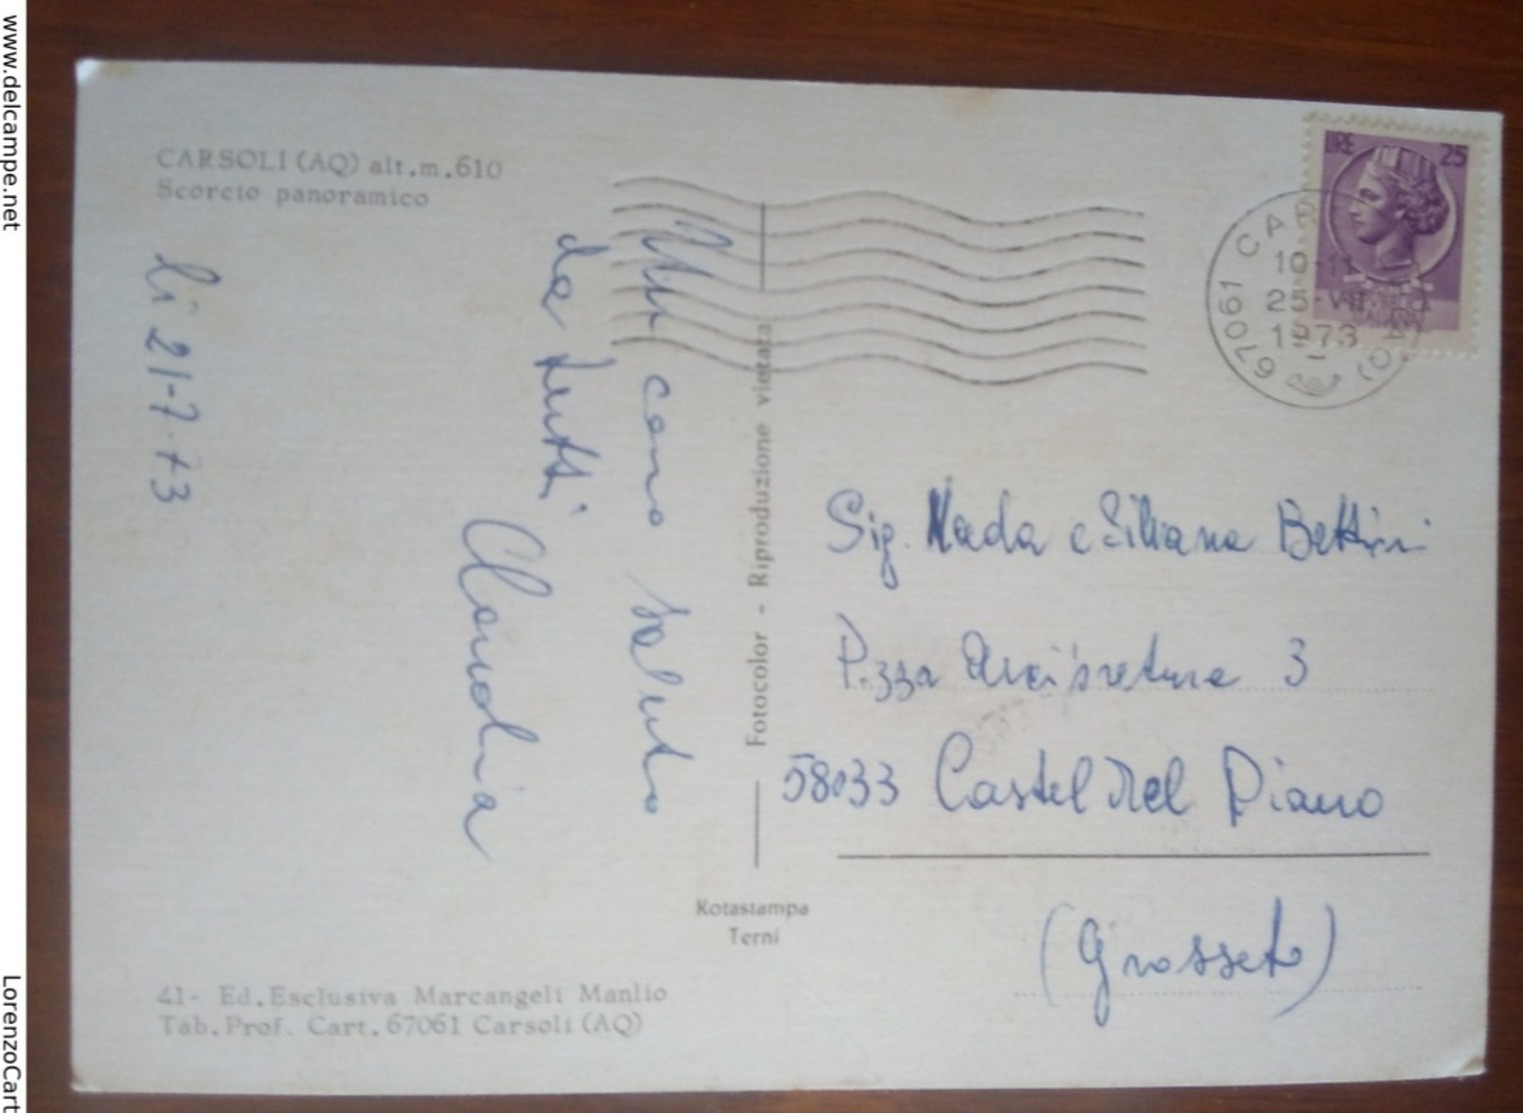 www.delcampe.net
CARSOLI (AQ) alt.m.610
Scorcio panoramico
li 21-7-73
Un caro saluto
da tutti
Claudia
Fotocolor - Riproduzione vietata
Rotastampa
Terni
41- Ed.Esclusiva Marcangeli Manlio
Tab.Prof. Cart.67061 Carsoli (AQ)
LIRE 25
10-11
25-VII
1973
67061 CAR
Sig. Nada e Silvana Bettini
P.zza Arcipretura 3
58033 Castel del Piano
(Grosseto)
LorenzoCart